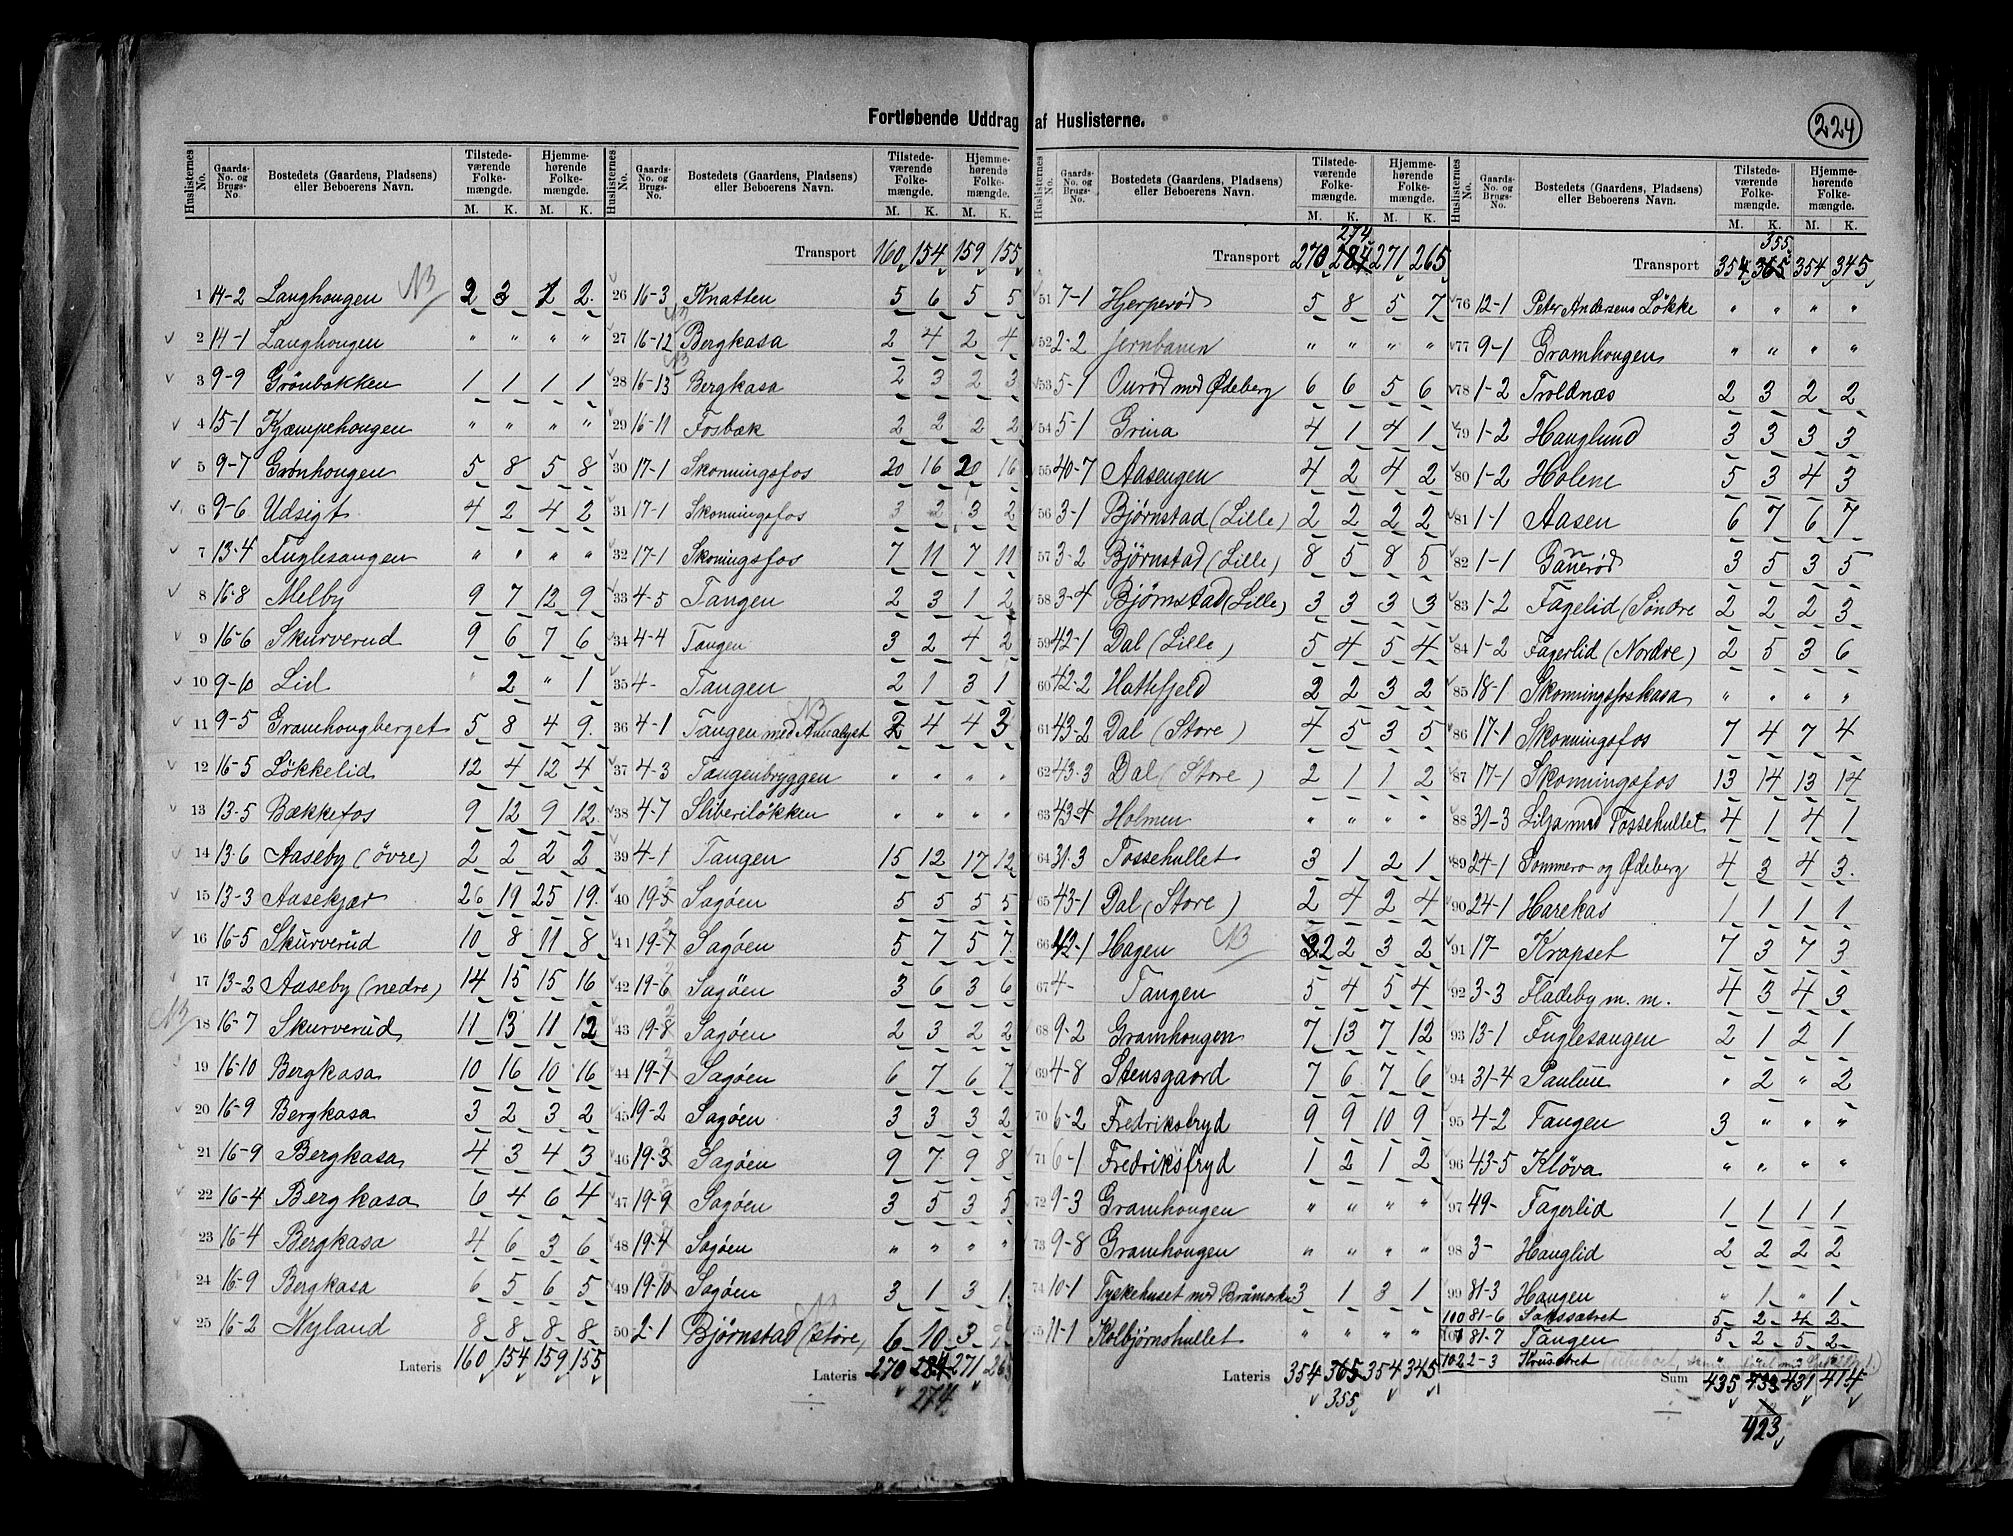 Fortløbende Uddrag af Huslisterne.
224
Huslisternes No. Gaards-No. og Brugs-No. Bostedets (Gaardens, Pladsens) eller Beboerens Navn. Tilstedeværende Folkemængde. M. K. Hjemmehørende Folkemængde. M. K.
1 14-2 Langhougen NB 2 3 1 2
2 14-1 Langhougen " " " "
3 9-9 Grönbakken 1 1 1 1
4 15-1 Kjæmpehougen " " " "
5 9-7 Grønhougen 5 8 5 8
6 9-6 Udsigt 4 2 4 2
7 13-4 Fuglesangen " " " "
8 16-8 Melby 9 7 12 9
9 16-6 Skurverud 9 6 7 6
10 9-10 Lid " 2 " 1
11 9-5 Gramhougberget 5 8 4 9
12 16-5 Løkkelid 12 4 12 4
13 13-5 Bækkefos 9 12 9 12
14 13-6 Aaseby (övre) 2 2 2 2
15 13-3 Aasekjær 26 19 25 19
16 16-5 Skurverud 10 8 11 8
17 13-2 Aaseby (nedre) 14 15 15 16
NB 18 16-7 Skurverud 11 13 11 12
19 16-10 Bergkasa 10 16 10 16
20 16-9 Bergkasa 3 2 3 2
21 16-9 Bergkasa 4 3 4 3
22 16-4 Bergkasa 6 4 6 4
23 16-4 Bergkasa 4 6 3 6
24 16-9 Bergkasa 6 5 6 5
25 16-2 Nyland 8 8 8 8
Lateris 160 154 159 155
Huslisternes No. Gaards-No. og Brugs-No. Bostedets (Gaardens, Pladsens) eller Beboerens Navn. Tilstedeværende Folkemængde. M. K. Hjemmehørende Folkemængde. M. K.
Transport 160 154 159 155
26 16-3 Knatten 5 6 5 5
NB
27 16-12 Bergkasa 2 4 2 4
NB
28 16-13 Bergkasa 2 3 2 3
29 16-11 Fosbæk 2 2 2 2
30 17-1 Skonningsfos 20 16 20 16
31 17-1 Skonningsfos 3 2 3 2
32 17-1 Skoningsfos 7 11 7 11
33 4-5 Tangen 2 3 1 2
34 4-4 Tangen 3 2 4 2
35 4- Tangen 2 1 3 1
NB
36 4-1 Tangen med 2 4 4 3
37 4-3 Tangenbryggen " " " "
38 4-7 Sliberiløkken " " " "
39 4-1 Tangen 15 12 17 12
40 19-5 Sagøen 5 5 5 5
41 19-7 Sagøen 5 7 5 7
42 19-6 Sagöen 3 6 3 6
43 19-8 Sagøen 2 3 2 2
44 19-1 Sagøen 6 7 6 7
45 19-2 Sagøen 3 3 3 2
46 19-3 Sagøen 9 7 9 8
47 19-9 Sagøen 3 5 3 5
48 19-4 Sagøen " " " "
49 19-10 Sagøen 3 1 3 1
NB
50 2-1 Bjørnstad (støre) 6 10 3
Lateris 270 284 271 265
274
Huslisternes No. Gaards-No. og Brugs-No. Bostedets (Gaardens, Pladsens) eller Beboerens Navn. Tilstedeværende Folkemængde. M. K. Hjemmehørende Folkemængde. M. K.
274
Transport 270 284 271 265
51 7-1 Hjerperød 5 8 5 7
52 2-2 Jernbanen " " " "
53 5-1 Ourød med Ødeberg 6 6 5 6
54 5-1 Grina 4 1 4 1
55 40-7 Aasengen 4 2 4 2
56 3-1 Bjørnstad (Lille) 2 2 2 2
57 3-2 Bjørnstad (Lille) 8 5 8 5
58 3-4 Bjørnstad (Lille) 3 3 3 3
59 42-1 Dal (Lille) 5 4 5 4
60 42-2 Hattefjeld 2 2 3 2
61 43-2 Dal (Store) 4 5 3 5
62 43-3 Dal (Store) 2 1 1 2
63 43-4 Holmen " " " "
64 31-3 Tossehullet 3 1 2 1
65 43-1 Dal (Store) 2 4 2 4
66 42-1 Hagen NB 2 2 3 2
67 4- Tangen 5 4 5 4
68 9-2 Gramhougen 7 13 7 12
69 4-8 Stensgaard 7 6 7 6
70 6-2 Fredriksfryd 9 9 10 9
71 6-1 Fredriksfryd 1 2 1 2
72 9-3 Gramhougen " " " "
73 9-8 Gramhougen " " " "
74 10-1 Tyskehuset med Bråmorken 3 1 3 1
75 11-1 Kolbjørnshullet " " " "
Lateris 354 365 354 345
355
Huslisternes No. Gaards-No. og Brugs-No. Bostedets (Gaardens, Pladsens) eller Beboerens Navn. Tilstedeværende Folkemængde. M. K. Hjemmehørende Folkemængde. M. K.
355
Transport 354 365 354 345
76 12-1 Peter Andersens Løkke " " " "
77 9-1 Gramhougen " " " "
78 1-2 Troldnæs 2 3 2 2
79 1-2 Hauglund 3 3 3 3
80 1-2 Holene 5 3 4 3
81 1-1 Aasen 6 7 6 7
82 1-1 Ganerød 3 5 3 5
83 1-2 Fagelid (Söndre 2 2 2 3
84 1-2 Fagerlid (Nordre) 2 5 3 6
85 18-1 Skonningsfoskasa " " " "
86 17-1 Skonningsfos 7 4 7 4
87 17-1 Skonningsfos 13 14 13 14
88 31-3 Lilja med Tossehullet 4 1 4 1
89 24-1 Sommero og Ødeberg 4 3 4 3
90 24-1 Harekas 1 1 1 1
91 17- Krapset 7 3 7 3
92 3-3 Fladeby m. m. 4 3 4 3
93 13-1 Fuglesangen 2 1 2 1
94 31-4 Paulun " 2 " 2
95 4-2 Tangen 3 " " "
96 43-5 Kløva " " " "
97 49- Fagerlid 1 1 1 1
98 3- Hauglid 2 2 2 2
99 81-3 Haugen " 1 " 1
100 81-6 5 2 4 2
101 81-7 Tangen 5 2 5 2
102 2-3 Krusætret " " " "
Sum 435 433 431 414
10
423